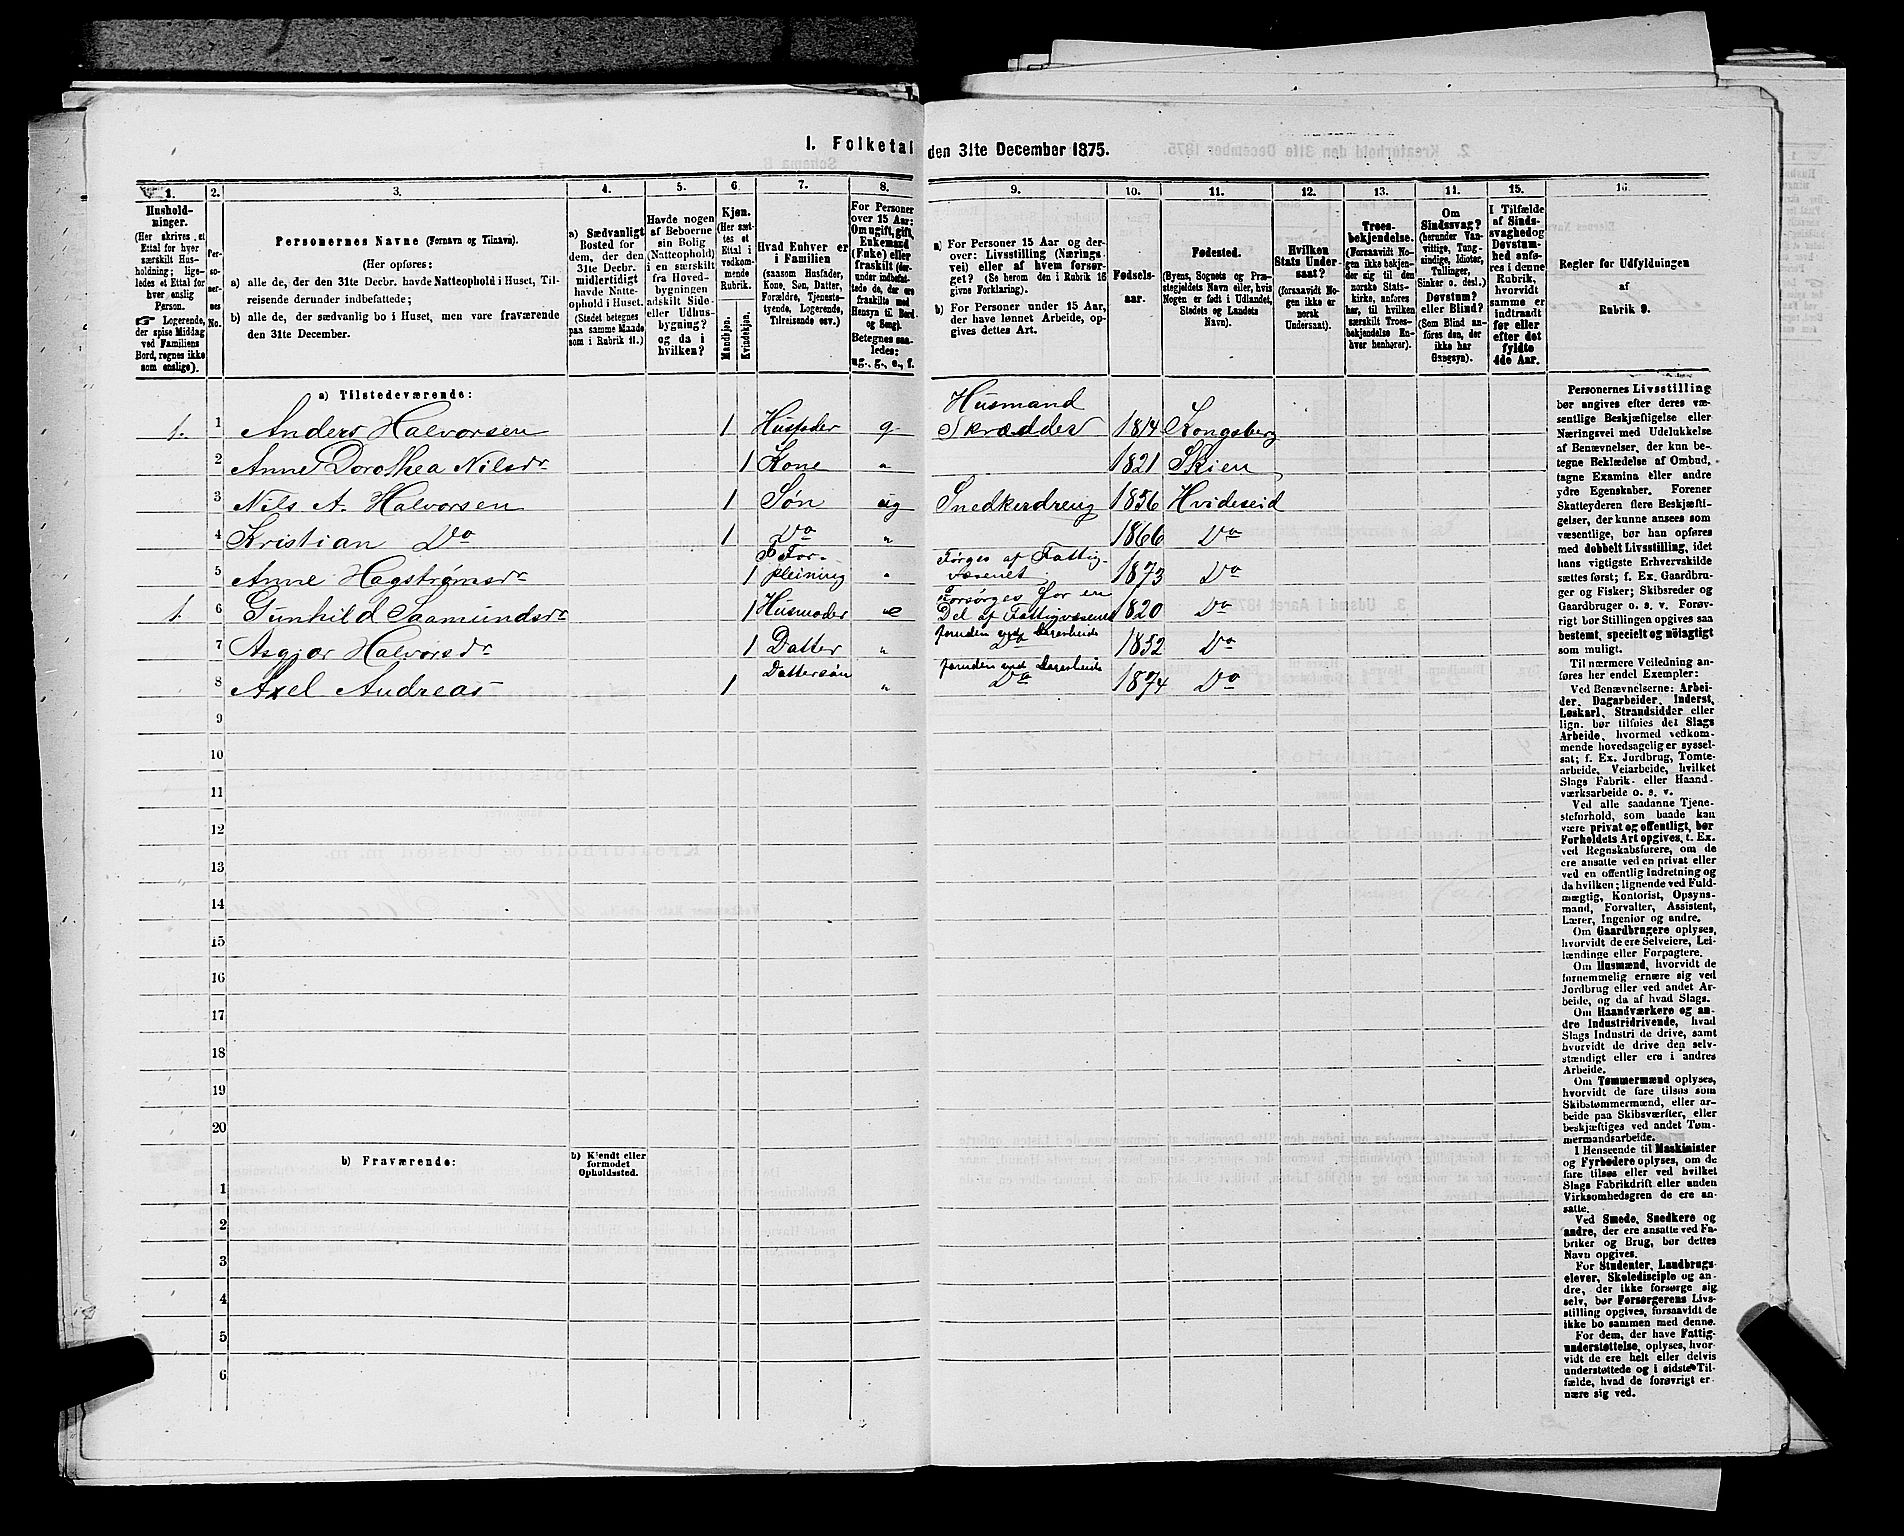 I. Folketal den 31te December 1875.
1. 2. 3. 4. 5. 6. 7. 8. 9. 10. 11. 12. 13. 11. 15. 16.
Husholdninger.
(Her skrives et
Ettal for hver
særskilt Husholdning;
ligeledes et Ettal for
hver enslig
Person.
Logerende,
der spise Middag
ved Familiens
Bord, regnes ikke
som enslige).
Personernes No.
Personernes Navne (Fornavn og Tilnavn).
(Her opføres:
a) alle de, der den 31te Decbr. havde Natteophold i Huset, Tilreisende derunder indbefattede;
b) alle de, der sædvanlig bo i Huset, men vare fraværende
den 31te December.
a) Sædvanligt
Bosted for
dem, der den
31te Decbr.
midlertidigt
havde Natteophold i Huset.
(Stedet betegnes
paa samme Maade
som i Rubrik 11.)
Havde nogen
af Beboerne
sin Bolig
(Natteophold)
i en særskilt
fra Hovedbygningen
adskilt Side-
eller Udhusbygning?
og da i
hvilken?
Kjøn.
(Her sættes et
Ettal i
vedkommende
Rubrik.
Mandkjøn.
Kvindekjøn.
Hvad Enhver er
i Familien
(saasom Husfader,
Kone, Søn, Datter,
Forældre, Tjenestetyende, Logerende,
Tilreisende osv.)
For Personer
over 15 Aar:
Om ugift, gift,
Enkemand
(Enke) eller
fraskilt
Betegnes saaledes:
ug., g., e., f.
a) For Personer 15 Aar og derover: Livsstilling (Næringsvei) eller af hvem forsørget? (Se herom den i Rubrik 16
givne Forklaring).
b) For Personer under 15 Aar,
der have lønnet Arbeide, opgives dettes Art.
Fødselsaar.
Fødested.
(Byens, Sognets og Præstegjeldets Navn eller, hvis
Nogen er født i Udlandet,
Stedets og Landets
Navn).
Hvilken
Stats Undersaat?
(forsaavidt Nogen ikke er
norsk
Undersaat).
Troesbekjendelse.
(Forsaavidt Nogen ikke bekjender sig til den
norske Statskirke, anføres
her, til hvilken
særskilt Troesbekjendelse Enhver henhører).
Om
Sindssvag?
(herunder Vanvittige, Tungsindige, Idioter,
Tullinger,
Sinker o. desl.)
Døvstum?
eller Blind?
(Som Blind anføres den, der
ikke har
Gangsyn).
I Tilfælde
af Sindssvaghed og
Døvstumhed anføres i denne
Rubrik,
hvorvidt
samme er
indtraadt
før eller
efter det
fyldte
4de Aar.
Regler for Udfyldningen
af
Rubrik 9.
a) Tilstedeværende:
1. 1 Anders Halvorsen 1 Husfader g. Husmand Skrædder 1814 Kongsberg
2 Anne Dorothea Nilsdr 1 Kone „ 1821 Skien
3 Nils A. Halvorsen 1 Søn ug Snedkerdreng 1856 Hvideseid
4 Kristian Do 1 Do „ 1866 Do
5 Anne Hagstrømsdr 1 Forpleining „ Førges af Fattigvæsenet 1873 Do
1. 6 Gunhild Saamundsdr 1 Husmoder e Forsørges for en Del af Fattigvæsenet 1820 Do
7 Asgjør Halvorsdr 1 Datter „ Do 1852 Do
8 Axel Andreas 1 Dattersøn „ Do 1874 Do
9
10
11
12
13
14
15
16
17
18
19
20
b) Fraværende:
b) Kjendt eller
formodet
Opholdssted.
1
2
3
4
5
6
Personernes Livsstilling
bør angives efter deres væsentlige Beskjæftigelse eller
Næringsvei med Udelukkelse
af Benævnelser, der kun betegne Beklædelse af Ombud,
tagne Examina eller andre
ydre Egenskaber. Forener
Skatteyderen flere Beskjæftigelser, der kunne ansees som
væsentlige, bør han opføres
med dobbelt Livsstilling, idet
hans vigtigste Erhvervskilde
sættes først; f. Ex. Gaardbruger og Fisker; Skibsreder og
Gaardbruger o. s. v. Forøvrigt bør Stillingen opgives saa
bestemt, specielt og nøiagtigt
som muligt.
Til nærmere Veiledning anføres her endel Exempler:
Ved Benævnelserne: Arbeider, Dagarbeider, Inderst,
Løskarl, Strandsidder eller
lign. bør tilføies det Slags
Arbeide, hvormed vedkommende hovedsagelig er sysselsat; f. Ex. Jordbrug, Tomtearbeide, Veiarbeide, hvilket
Slags Fabrik- eller Haandværksarbeide o. s. v.
Ved alle saadanne Tjenesteforhold, som baade kan
være privat og offentligt, bør
Forholdets Art opgives, t. Ex.
ved Regnskabsførere, om de
ere ansatte ved en privat eller
ved en offentlig Indretning og
da hvilken; lignende ved Fuldmægtig, Kontorist, Opsynsmand, Forvalter, Assistent,
Lærer, Ingeniør og andre.
Om Gaardbrugere oplyses,
hvorvidt de ere Selveiere, Leilændinge eller Forpagtere.
Om Husmænd, hvorvidt de
fornemmelig ernære sig ved
Jordbrug eller ved andet Arbeide, og da af hvad Slags.
Om Haandværkere og andre Industridrivende, hvad
Slags Industri de drive, samt
hvorvidt de drive den selvstændigt eller ere i andres
Arbeide.
Om Tømmermænd oplyses,
hvorvidt de fare tilsøs som
Skibstømmermænd, eller arbeide paa Skibsværfter, eller
beskjæftiges ved andet Tømmermandsarbeide.
I Henseende til Maskinister
og Fyrbødere oplyses, om de
fare tilsøs eller ved hvilket
Slags Fabrikdrift eller anden
Virksomhedsgren de ere ansatte.
Ved Smede, Snedkere og
andre, der ere ansatte ved Fabriker og Brug, bør dettes
Navn opgives.
For Studenter, Landbrugselever, Skoledisciple og andre, der ikke forsørge sig
selv, bør Forsørgerens Livsstilling opgives, forsaavidt de
ikke bo sammen med denne.
For dem, der have Fattigunderstøttelse, oplyses, hvorvidt de ere helt eller delvis
understøttede og i sidste Tilfælde, hvad de forøvrigt ernære sig ved.